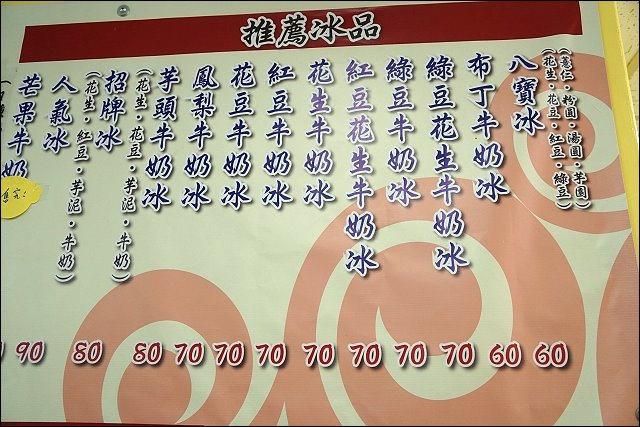 推薦冰品
(薏仁・粉圓・湯圓・芋圓)
(花生・花豆・紅豆・綠豆)
八寶冰
布丁牛奶冰
綠豆花生牛奶冰
綠豆牛奶冰
紅豆花生牛奶冰
花生牛奶冰
紅豆牛奶冰
花豆牛奶冰
鳳梨牛奶冰
芋頭牛奶冰
(花生・花豆・芋泥・牛奶)
招牌冰
(花生・紅豆・芋泥・牛奶)
人氣冰
芒果牛奶
完!
90 80 80 70 70 70 70 70 70 70 60 60